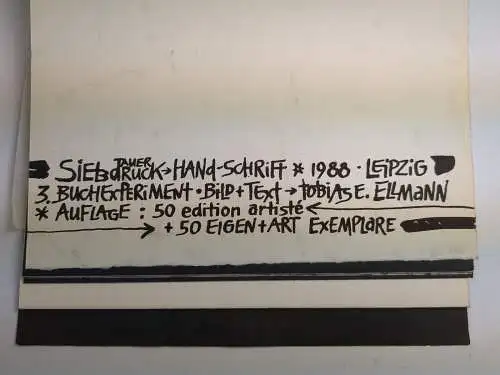 SIEBDRUCK TAUER → HAND-SCHRIFT * 1988 · LEIPZIG
3. BUCHEXPERIMENT · BILD + TEXT → TOBIAS E. ELLMANN
* AUFLAGE : 50 edition artisté ←
→ + 50 EIGEN + ART EXEMPLARE